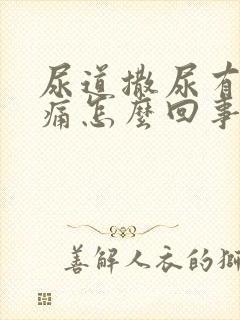 尿道撒尿有
痛怎麼回事
善解人衣的獅